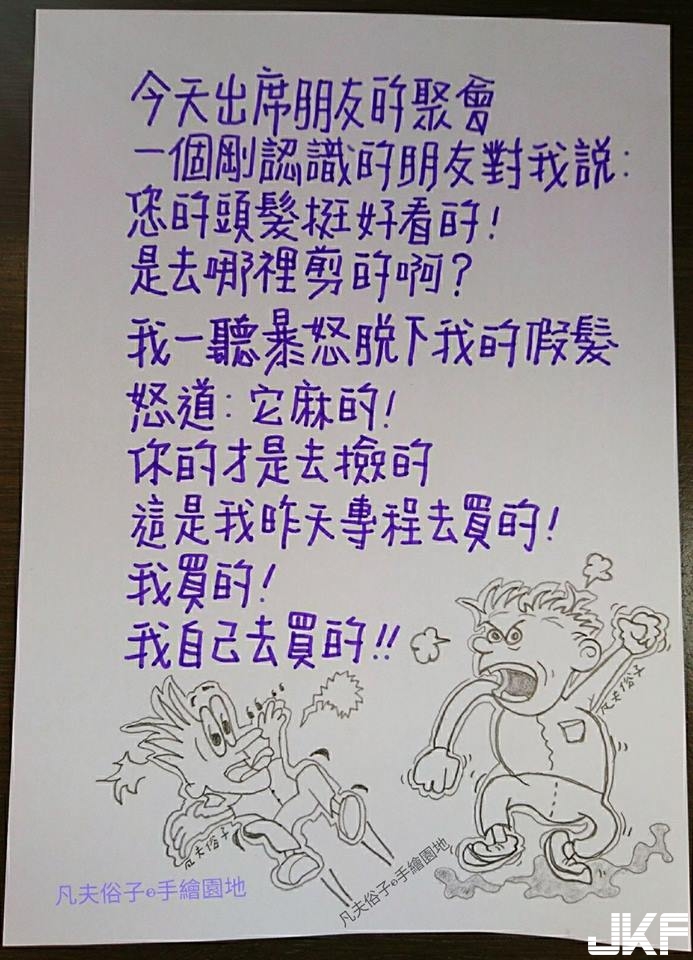 今天出席朋友的聚會
一個剛認識的朋友對我說:
您的頭髮挺好看的!
是去哪裡剪的啊?
我一聽暴怒脫下我的假髮
怒道:它麻的!
你的才是去撿的
這是我昨天專程去買的!
我買的!
我自己去買的!!
凡夫俗子
凡夫俗子
凡夫俗子e手繪園地
凡夫俗子e手繪園地
JKF